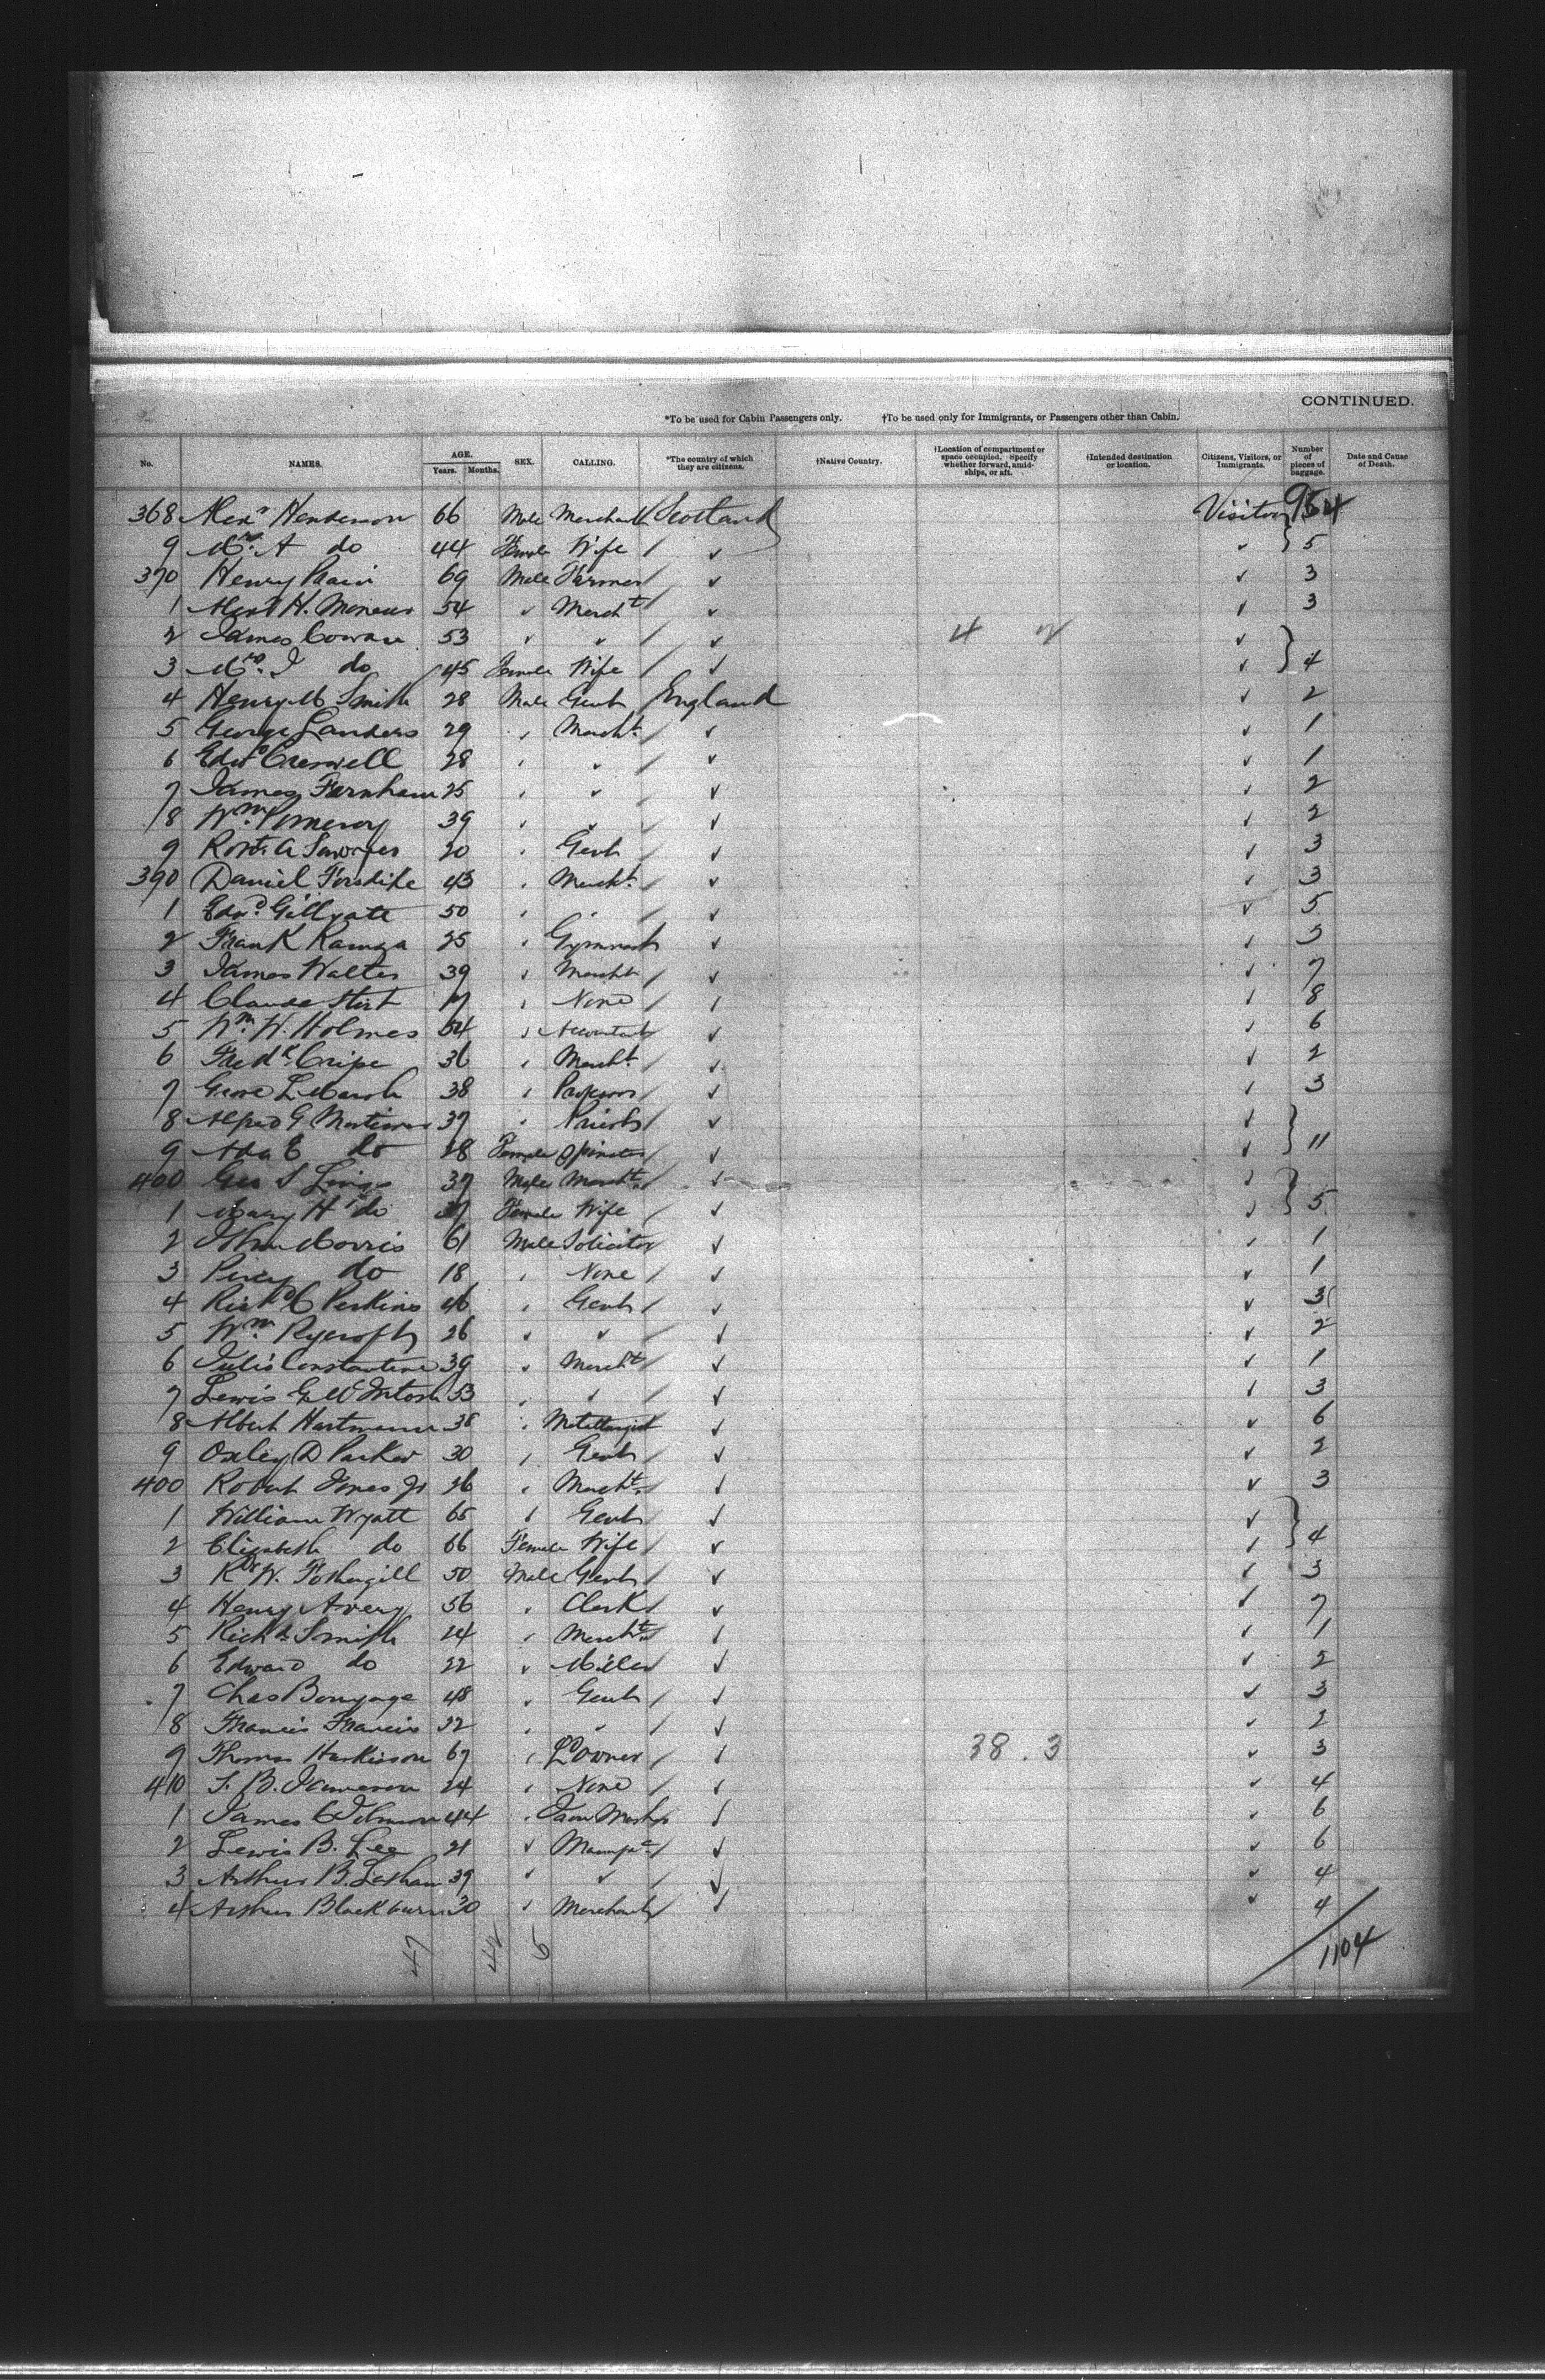 CONTINUED.
*To be used for Cabin Passengers only. †To be used only for Immigrants, or Passengers other than Cabin.
No. NAMES. AGE. Years. Months. SEX. CALLING. *The country of which they are citizens. †Native Country. †Location of compartment or space occupied. Specify whether forward, amidships, or aft. †Intended destination or location. Citizens, Visitors, or Immigrants. Number of pieces of baggage. Date and Cause of Death.
368 Alexr Henderson 66 Male Merchant Scotland Visitor 954
9 Mrs. A do 44 Female Wife / ✓ ✓ } 5
370 Henry 69 Male Farmer / ✓ ✓ 3
1 Alexr H. 54 ✓ Mercht / ✓ ✓ 3
2 James Cowan 53 ✓ ✓ / ✓ 4 2 ✓ }
3 Mrs. J do 45 Female Wife / ✓ ✓ } 4
4 Henry M Smith 28 Male Gent England ✓ 2
5 George Sanders 29 ✓ Mercht / ✓ ✓ 1
6 Edwd Creswell 28 ✓ ✓ / ✓ ✓ 1
7 James Farnham 25 ✓ ✓ / ✓ ✓ 2
8 Wm. Pomeroy 39 ✓ ✓ / ✓ ✓ 2
9 Robt. A Sawyer 20 ✓ Gent / ✓ ✓ 3
390 Daniel Forsdike 43 ✓ Mercht / ✓ ✓ 3
1 Edwd. Gillyatt 50 ✓ ✓ / ✓ ✓ 5
2 Frank 25 ✓ Gymnast ✓ ✓ 3
3 James Walter 39 ✓ Mercht / ✓ ✓ 7
4 Claude ✓ None / ✓ ✓ 8
5 Wm. W. Holmes 54 ✓ Accountant ✓ ✓ 6
6 Fredk. Cripe 36 ✓ Mercht / ✓ ✓ 2
7 L. Marsh 38 ✓ / ✓ ✓ 3
8 Alfred G Mortimer 37 ✓ Priest / ✓ ✓ }
9 Ada E do 28 Female Spinster / ✓ ✓ } 11
400 Geo S 37 Male Mercht. ✓ ✓ }
1 Mary H do Female Wife / ✓ ✓ } 5
2 John Morris 61 Male Solicitor ✓ ✓ 1
3 Percy do 18 ✓ None / ✓ ✓ 1
4 Richd C Perkins 46 ✓ Gent / ✓ ✓ 3
5 Wm. Rycroft 26 ✓ ✓ / ✓ ✓ 2
6 Constantine 39 ✓ Mercht / ✓ ✓ 1
7 Lewis G McIntosh 53 ✓ ✓ / ✓ ✓ 3
8 Albert Hartmann 38 ✓ Metallurgist ✓ ✓ 6
9 Oxley D Parker 30 ✓ Gent / ✓ ✓ 2
400 Robert Jr 26 ✓ Mercht. ✓ ✓ 3
1 William Wyatt 65 ✓ Gent / ✓ ✓ }
2 Elizabeth do 66 Female Wife / ✓ ✓ } 4
3 W. Fothergill 50 Male Gent / ✓ ✓ 3
4 Henry Avery 56 ✓ Clerk / ✓ ✓ 7
5 Richd. Smith 24 ✓ Mercht / ✓ ✓ 1
6 Edward do 22 ✓ Miller ✓ ✓ 2
7 Chas 48 ✓ Gent / ✓ ✓ 3
8 Francis Francis 32 ✓ ✓ / ✓ ✓ 2
9 Thomas Harkisson 67 ✓ Ld Owner / ✓ 38 . 3 ✓ 3
410 J. B. Jameson 24 ✓ None / ✓ ✓ 4
1 James 44 ✓ ✓ ✓ 6
2 Lewis B. Lee 21 ✓ ✓ ✓ 6
3 Arthur B. 39 ✓ ✓ / ✓ ✓ 4
4 Arthur Blackburn 30 ✓ Merchant ✓ ✓ 4
47 42 5
1104